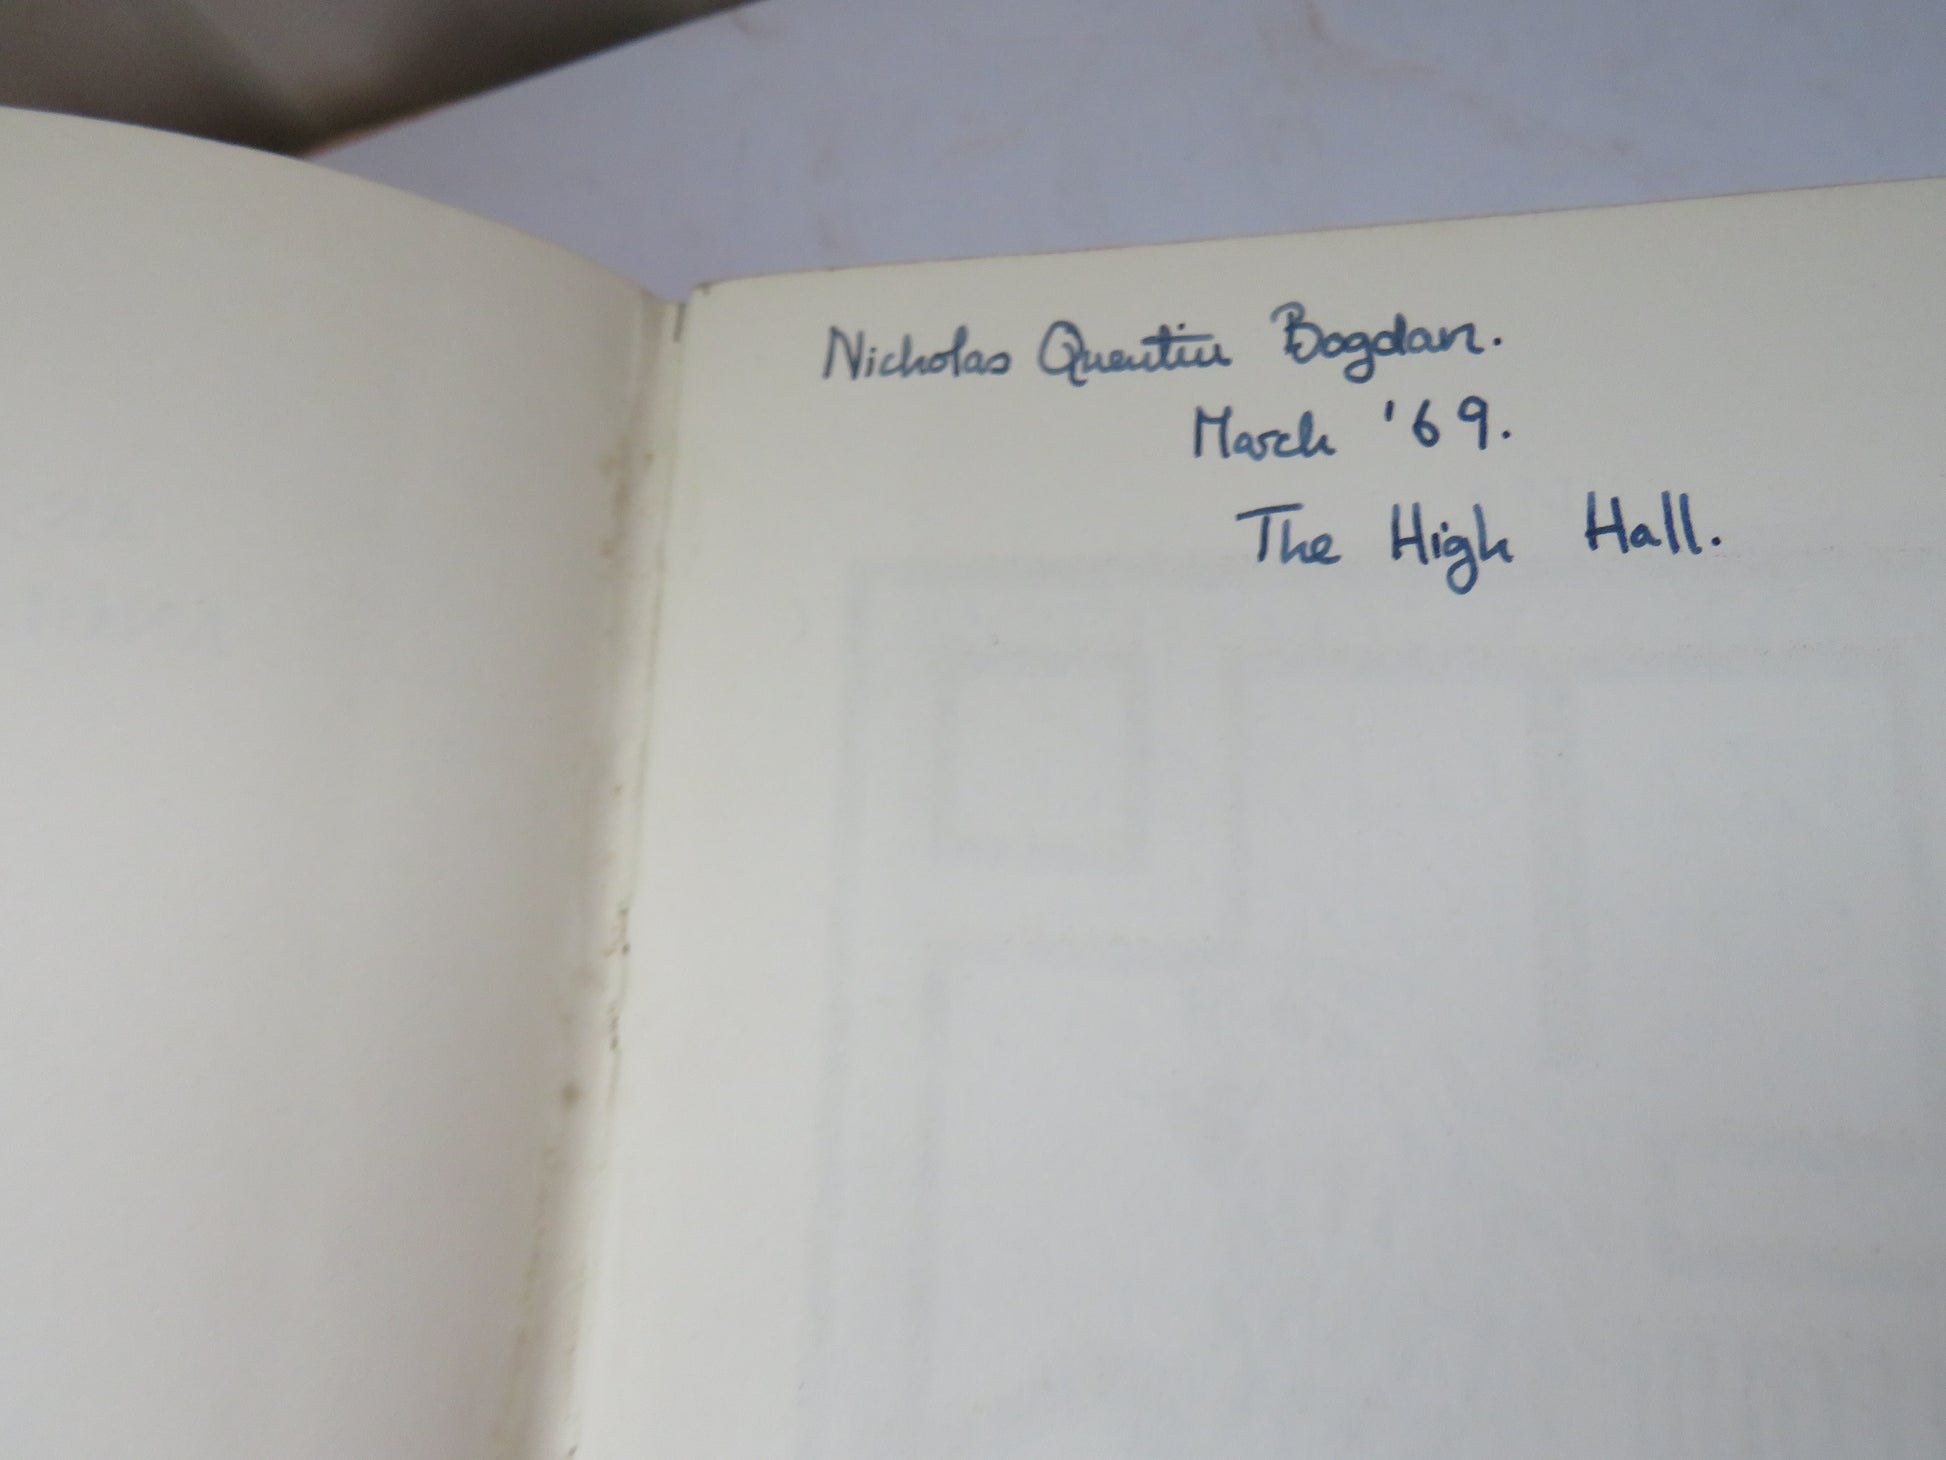 Nicholas Quentin Bogdan.
March '69.
The High Hall.